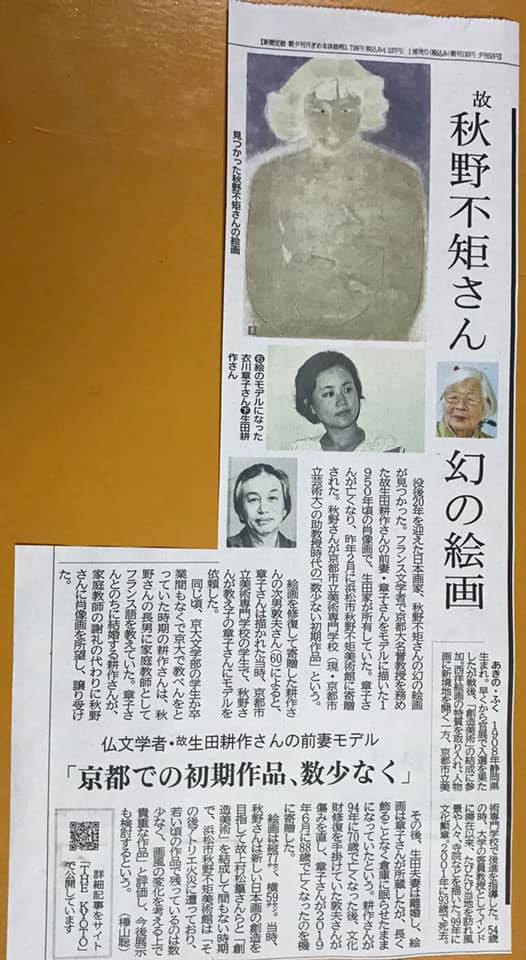 故 秋野不矩さん 幻の絵画
見つかった秋野不矩さんの絵画
㊨絵のモデルになった
衣川章子さん㊦生田耕
作さん
没後20年を迎えた日本画家、秋野不矩さんの幻の絵画
が見つかった。フランス文学者で京都大名誉教授を務め
た故生田耕作さんの前妻・章子さんをモデルに描いた1
950年頃の肖像画で、生田家が所有していた。章子さ
んが亡くなり、昨年2月に浜松市秋野不矩美術館に寄贈
された。秋野さんが京都市立美術専門学校(現・京都市
立芸術大)の助教授時代の「数少ない初期作品」という。
仏文学者・故生田耕作さんの前妻モデル
「京都での初期作品、数少なく」
絵画を修復して寄贈した耕作さ
んの次男敦夫さん(60)によると、
章子さんは描かれた当時、京都市
立美術専門学校の学生で、秋野さ
んが教え子の章子さんにモデルを
依頼した。
同じ頃、京大文学部の学生か卒
業間もなくて京大で教べんをと
っていた時期の耕作さんは、秋
野さんの長男に家庭教師として
フランス語を教えていた。章子さ
んとのちに結婚する耕作さんが、
家庭教師の謝礼の代わりに秋野
さんに肖像画を所望し、譲り受け
た。
その後、生田夫妻は離婚し、絵
画は章子さんが所蔵したが、長く
飾ることなく倉庫に眠らせたまま
になっていたという。耕作さんが
94年に70歳で亡くなった後、文化
財修復を手掛けていた敦夫さんが
傷みを直し、章子さんが2019
年6月に88歳で亡くなったのを機
に寄贈した。
絵画は縦77㌢、横59㌢。当時、
秋野さんは新しい日本画の創造を
目指して故上村松篁さんらと「創
造美術」を結成して間もない時期
で、浜松市秋野不矩美術館は「そ
の後アトリエ火災に遭っており、
若い頃の作品で残っているのは数
少なく、画風の変化を考える上で
貴重な作品」と評価し、今後展示
も検討するという。(樺山聡)
あきの・ふく 1908年静岡県
生まれ。早くから官展で入選を果た
したが戦後、「創造美術」の結成に参
加。西洋絵画の特質を取り入れ、人物
画に新境地を開く一方、京都市立美
術専門学校で後進を指導した。54歳
の時、大学の客員教授としてインド
に滞在以来、たびたび当地を訪れ風
景や人々、寺院などを描いた。99年に
文化勲章。2001年に93歳で死去。
詳細記事をサイト
「THE KYOTO」
で公開しています